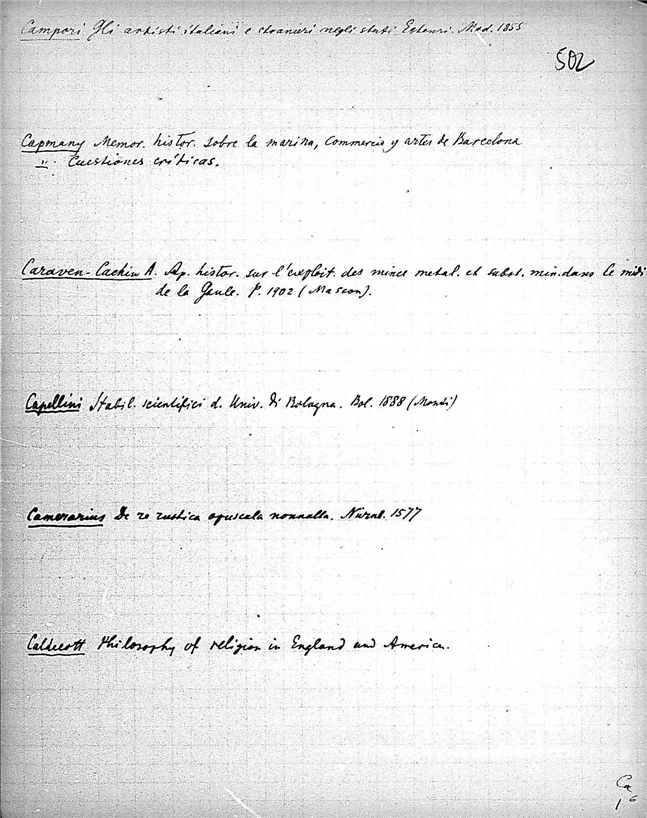 Campori Gli artisti italiani e stranieri negli stati Estensi. Mod. 1855
502
Capmany Memor. histor. sobre la marina, Commercio y artes de Barcelona
" Cuestiones criticas.
Caraven-Cachin A. Ap. histor. sur l'exploit. des mines metal. et subst. min. dans le midi
de la Gaule. P. 1902 (Masson).
Capellini Stabil. scientifici d. Univ. di Bologna. Bol. 1888 (Monti)
Camerarius De re rustica opuscula nonnulla. Nurnb. 1577
Caldecott Philosophy of religion in England and America.
Ca
16